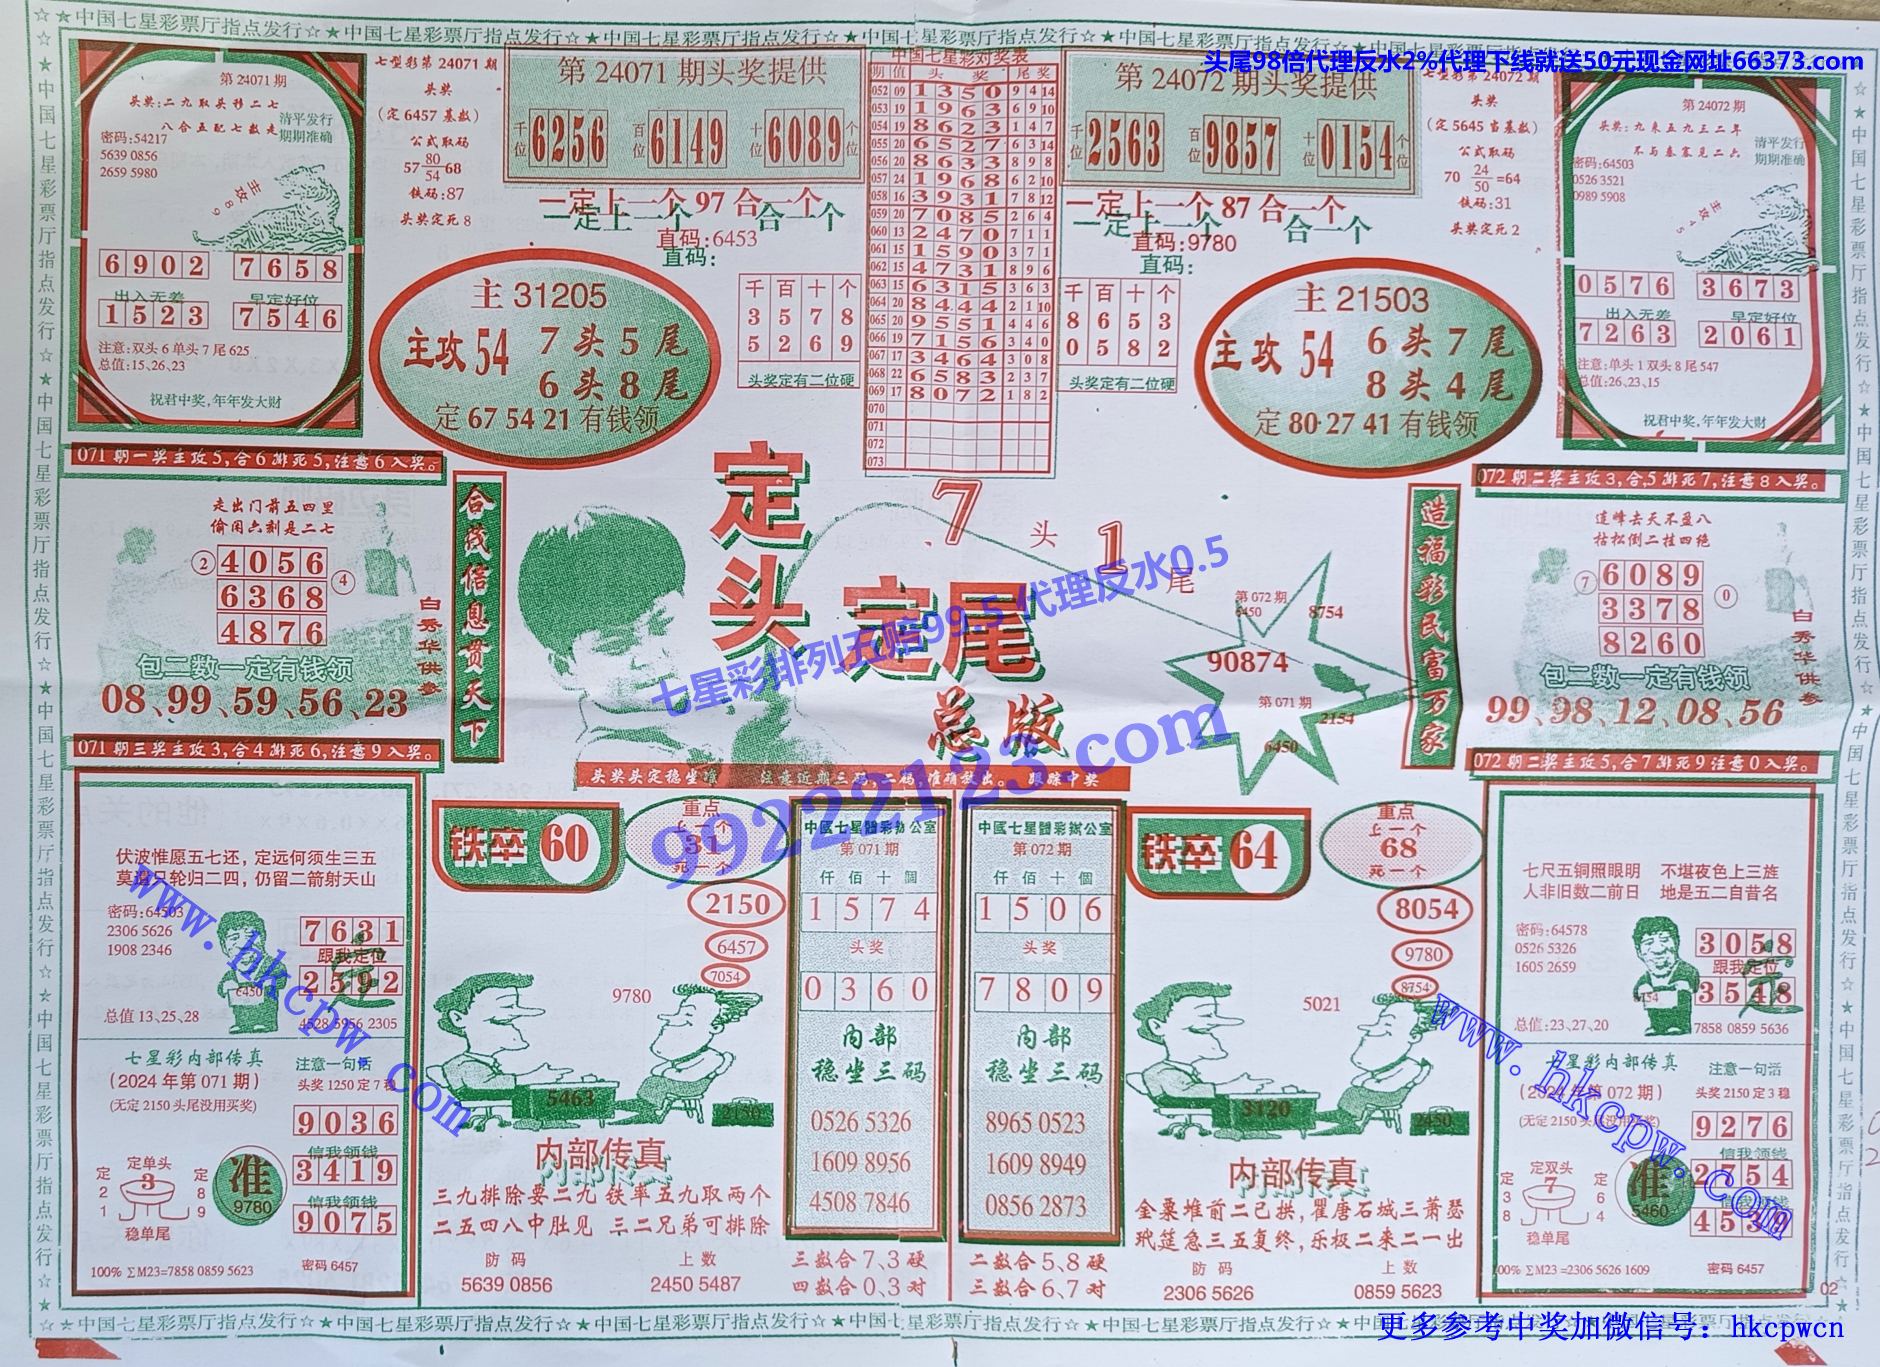 ☆★中国七星彩票厅指点发行☆★中国七星彩票厅指点发行☆★中国七星彩票厅指点发行☆★中国七星彩票厅指点发行
头尾98倍代理反水2%代理下线就送50元现金网址66373.com
第 24071 期
头奖:二九取头移二七
八合五配七数走
清平发行
期期准确
密码:54217
5639 0856
2659 5980
主攻89
6902 7658
出入无差 早定好位
1523 7546
注意:双头 6 单头 7 尾 625
总值:15、26、23
祝君中奖,年年发大财
七型彩第 24071 期
头奖
(定 6457 基数)
公式取码
57 80/54 68
铁码:87
头奖定死 8
第 24071 期头奖提供
千位 6256 百位 6149 十位 6089 个位
一定上一个 97 合一个
一定上一个 合一个
直码:6453
直码:
主 31205
主攻 54 7 头 5 尾
6 头 8 尾
定 67 54 21 有钱领
千 百 十 个
3 5 7 8
5 2 6 9
头奖定有二位硬
中国七星彩对奖表
期 值 头奖 尾奖
052 09 1350 9 4 14
053 19 1963 6 9 10
054 19 8623 1 4 7
055 20 6527 6 3 14
056 20 8633 8 9 8
057 24 1968 6 2 10
058 16 3931 7 8 12
059 20 7085 2 6 4
060 13 2470 7 1 1
061 15 1590 3 7 1
062 15 4731 8 9 6
063 15 6315 3 6 3
064 20 8444 2 1 10
065 20 9551 4 4 6
066 19 7156 3 4 0
067 17 3464 3 0 8
068 22 6583 2 3 7
069 17 8072 1 8 2
070
071
072
073
第 24072 期头奖提供
千位 2563 百位 9857 十位 0154 个位
一定上一个 87 合一个
一定上一个 合一个
直码:9780
直码:
千 百 十 个
8 6 5 3
0 5 8 2
头奖定有二位硬
主 21503
主攻 54 6 头 7 尾
8 头 4 尾
定 80·27 41 有钱领
七型彩第 24072 期
头奖
(定 5645 当基数)
公式取码
70 24/50 =64
铁码:31
头奖定死 2
第 24072 期
头奖:九来五九三二年
不与秦塞见二六
清平发行
期期准确
密码:64503
0526 3521
0989 5908
主攻45
0576 3673
出入无差 早定好位
7263 2061
注意:单头 1 双头 8 尾 547
总值:26、23、15
祝君中奖,年年发大财
071 期一奖主攻 5, 合 6 排死 5, 注意 6 入奖。
走出门前五四里
偷闲六刻是二七
② 4056 ④
6368
4876
包二数一定有钱领
08、99、59、56、23
白秀华供参
合茂信息贯天下
定头
定尾
总版
7 头 1 尾
七星彩排列五赔99.5 代理反水0.5
99222123.com
头奖头定稳坐 注意近期三码,二码,准确救出。 跟踪中奖
第 072 期
6450
8754
90874
第 071 期
2154
6450
造福彩民富万家
072 期二奖主攻 3, 合 5 排死 7, 注意 8 入奖。
连峰去天不盈八
枯松倒二挂四绝
⑦ 6089 ⓪
3378
8260
包二数一定有钱领
99、98、12、08、56
白秀华供参
071 期三奖主攻 3, 合 4 排死 6, 注意 9 入奖。
伏波惟愿五七还,定远何须生三五
莫遣只轮归二四,仍留二箭射天山
密码:64503
2306 5626
1908 2346
7631
跟我定位
2592
定
6450
总值 13、25、28
4528 5956 2305
www.hkcpw.com
七星彩内部传真
(2024 年第 071 期)
(无定 2150 头尾没用买奖)
注意一句话
头奖 1250 定 7 稳
9036
信我领钱
3419
信我领钱
9075
定21 定单头 3 稳单尾 定89
准
9780
100% ∑M23=7858 0859 5623
密码 6457
铁卒 60
重点
上一个
31
死一个
2150
6457
7054
9780
5463
2150
内部传真
内部传真
三九排除要二九 铁率五九取两个
二五四八中肚见 三二兄弟可排除
防码 上数
5639 0856 2450 5487
中國七星體彩办公室
第 071 期
仟 佰 十 個
1 5 7 4
头奖
0 3 6 0
内部
稳坐三码
0526 5326
1609 8956
4508 7846
三数合 7、3 硬
四数合 0、3 对
中國七星體彩办公室
第 072 期
仟 佰 十 個
1 5 0 6
头奖
7 8 0 9
内部
稳坐三码
8965 0523
1609 8949
0856 2873
二数合 5、8 硬
三数合 6、7 对
铁卒 64
重点
上一个
68
死一个
8054
9780
8754
5021
3120
2450
内部传真
内部传真
金粟堆前二已拱,瞿唐石城三萧瑟
玳筵急三五复终,乐极二来二一出
防码 上数
2306 5626 0859 5623
072 期二奖主攻 5, 合 7 排死 9 注意 0 入奖。
七尺五铜照眼明 不堪夜色上三旌
人非旧数二前日 地是五二自昔名
密码:64578
0526 5326
1605 2659
3058
跟我定位
3548
定
总值:23、27、20
7858 0859 5636
www.hkcpw.com
七星彩内部传真
(2024 年第 072 期)
(无定 2150 头尾没用买奖)
注意一句话
头奖 2150 定 3 稳
9276
信我领钱
2754
信我领钱
4539
定38 定双头 7 稳单尾 定64
准
5460
100% ∑M23=2306 5626 1609
密码 6457
02
☆★中国七星彩票厅指点发行☆★中国七星彩票厅指点发行☆★中国七星彩票厅指点发行☆★中国七星彩票厅指点发行
更多参考中奖加微信号：hkcpwcn